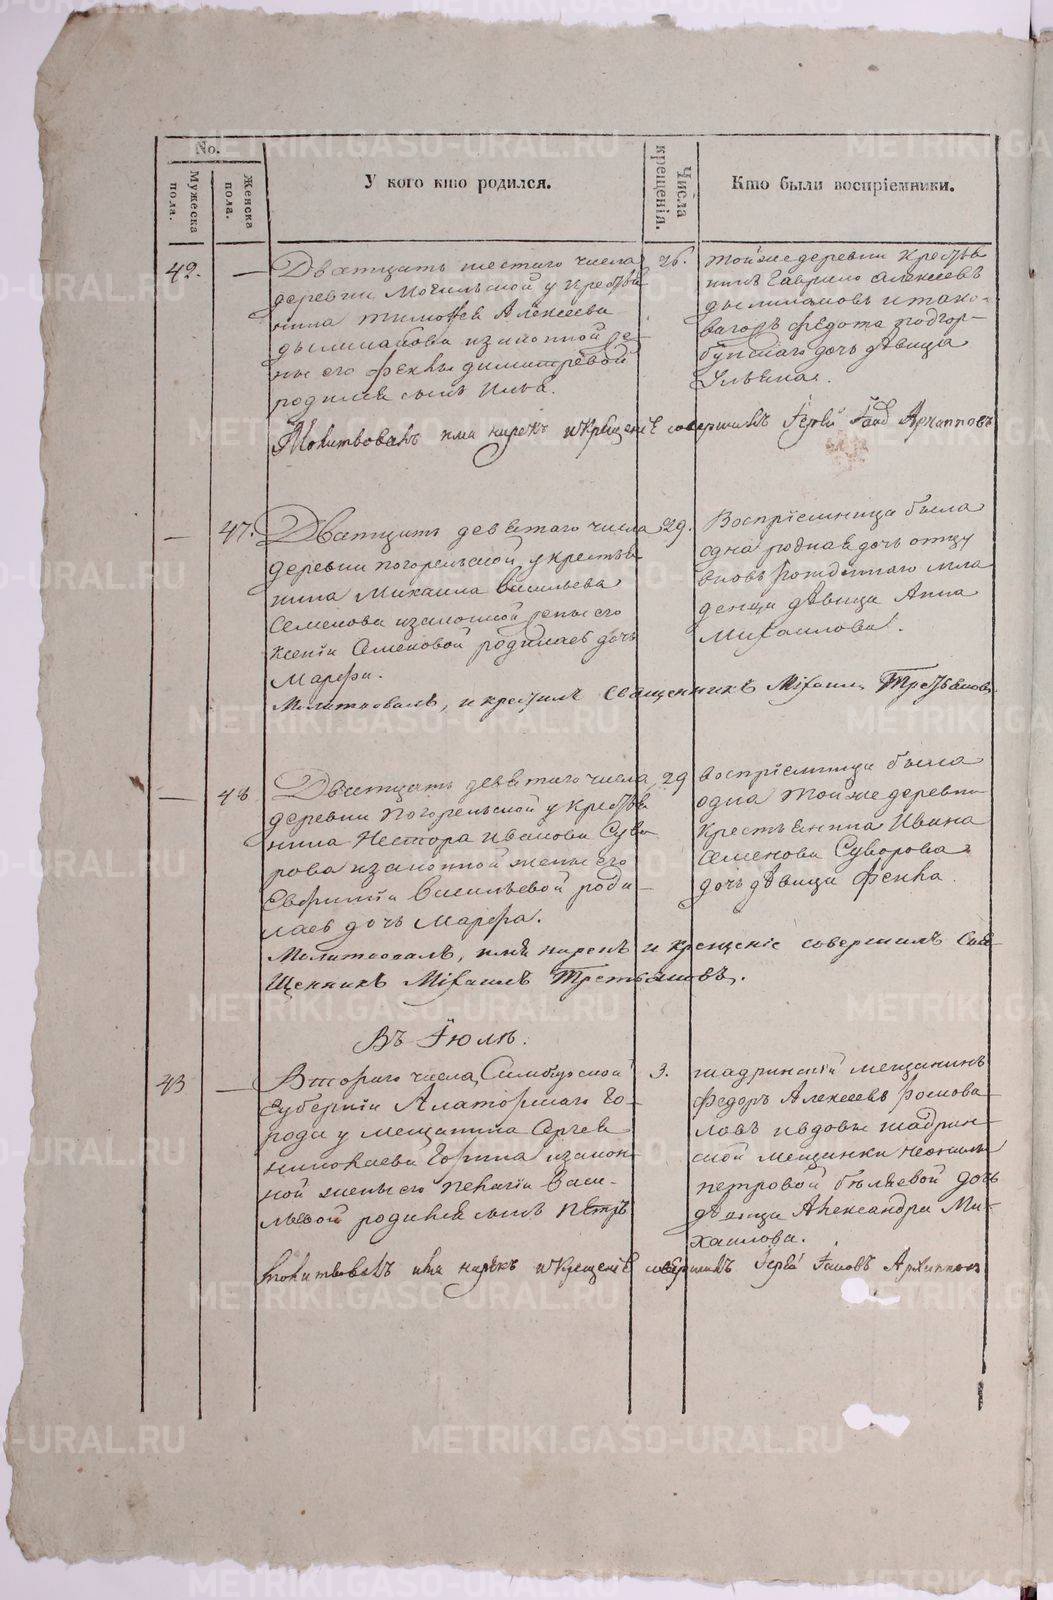 No.
Мужеска пола.
Женска пола.
У кого кто родился.
Числа крещенія.
Кто были воспріемники.
42.
—
Дватцать шестаго числа
деревни Могильской у крестья
нина Тимофея Алексеева
изаконной же
ны его Феклы Димитревой
родился сынъ Илья.
26.
тойже деревни крестья
нинъ Гаврило Алексеевъ
итако
вагожъ Федота подгор-
бунскаго дочь дѣвица
Ульяна.
Молитвовалъ имя нарекъ икрещеніе совершилъ Іерей Архиповъ
—
47.
Дватцать девятаго числа
деревни погорельской, укрестья
нина Михаила Васильева
Семенова изаконной жены его
Ксеніи Семеновой родилась дочь
Марфа.
29.
Воспріемница была
одна родная дочь отцу
вновь рожденнаго мла
денца дѣвица Анна
Михаилова.
Молитвовалъ, и крестилъ Священникъ Михаилъ Третьяковъ
—
48
Дватцать девятаго числа
деревни Погорельской у крестья
нина Нестора Иванова Суво
рова изаконной жены его
Евфиміи Васильевой роди
лась дочь Марфа.
29
воспріемница была
одна тойже деревни
крестьянина Ивана
Семенова Суворова
дочь дѣвица Фекла.
Молитвовалъ, имя нарекъ и крещеніе совершилъ Свя
щенникъ Михаилъ Третьяковъ.
Въ Іюлѣ.
43
—
Втораго числа, Симбирской
Губерніи Алаторскаго го-
рода у мещанина Сергея
Николаева Горина изакон
ной жены его Пелагіи Васи-
льевой родился сынъ Петръ
3.
шадринскій мещанинъ
Федоръ Алексеевъ
ивдовы шадрин-
ской мещанки неонилы
петровой бѣляевой дочь
дѣвица Александра Ми-
хаилова.
Молитвовалъ имя нарекъ икрещеніе совершилъ Іерей Іаковъ Архиповъ
METRIKI.GASO-URAL.RU